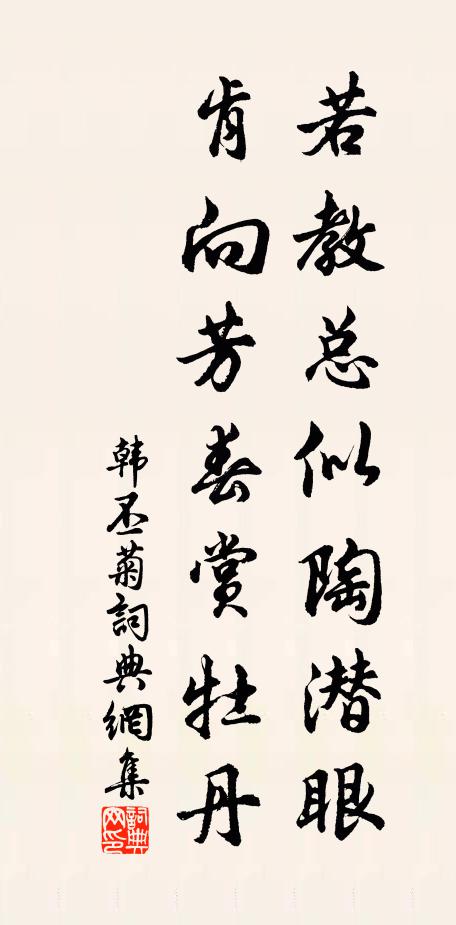 若教总似陶潜眼
肯向芳春赏牡丹
韩丕菊詞典網集
詞典網印